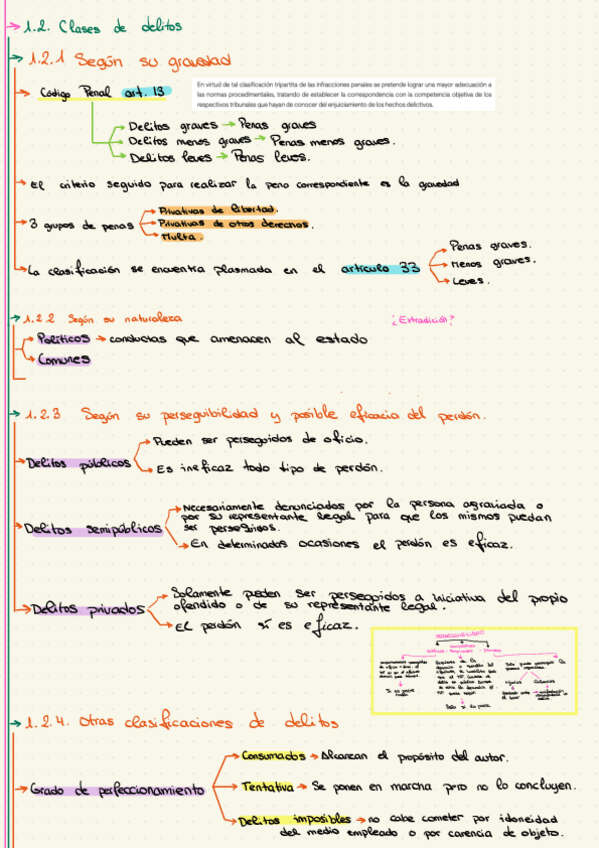 1.2. Clases de delitos
1.2.1 Según su gravedad
Código Penal art. 13
En virtud de tal clasificación tripartita de las infracciones penales se pretende lograr una mayor adecuación a
las normas procedimentales, tratando de establecer la correspondencia con la competencia objetiva de los
respectivos tribunales que hayan de conocer del enjuiciamiento de los hechos delictivos.
Delitos graves → Penas graves
Delitos menos graves → Penas menos graves.
Delitos leves → Penas leves.
El criterio seguido para realizar la pena correspondiente es la gravedad
3 grupos de penas
Privativas de libertad.
Privativas de otros derechos.
Multa.
La clasificación se encuentra plasmada en el artículo 33
Penas graves.
Menos graves.
Leves.
1.2.2 Según su naturaleza
¿Extradición?
Políticos → conductas que amenacen al estado
Comunes
1.2.3 Según su perseguibilidad y posible eficacia del perdón.
Delitos públicos
Pueden ser perseguidos de oficio.
Es ineficaz todo tipo de perdón.
Delitos semipúblicos
Necesariamente denunciados por la persona agraviada o
por su representante legal para que los mismos puedan
ser perseguidos.
En determinadas ocasiones el perdón es eficaz.
Delitos privados
Solamente pueden ser perseguidos a iniciativa del propio
ofendido o de su representante legal.
El perdón sí es eficaz.
PERSEGUIBILIDAD
1.2.4. Otras clasificaciones de delitos
Grado de perfeccionamiento
Consumados → Alcanzan el propósito del autor.
Tentativa → Se ponen en marcha pero no lo concluyen.
Delitos imposibles → no cabe cometer por idoneidad
del medio empleado o por carencia de objeto.